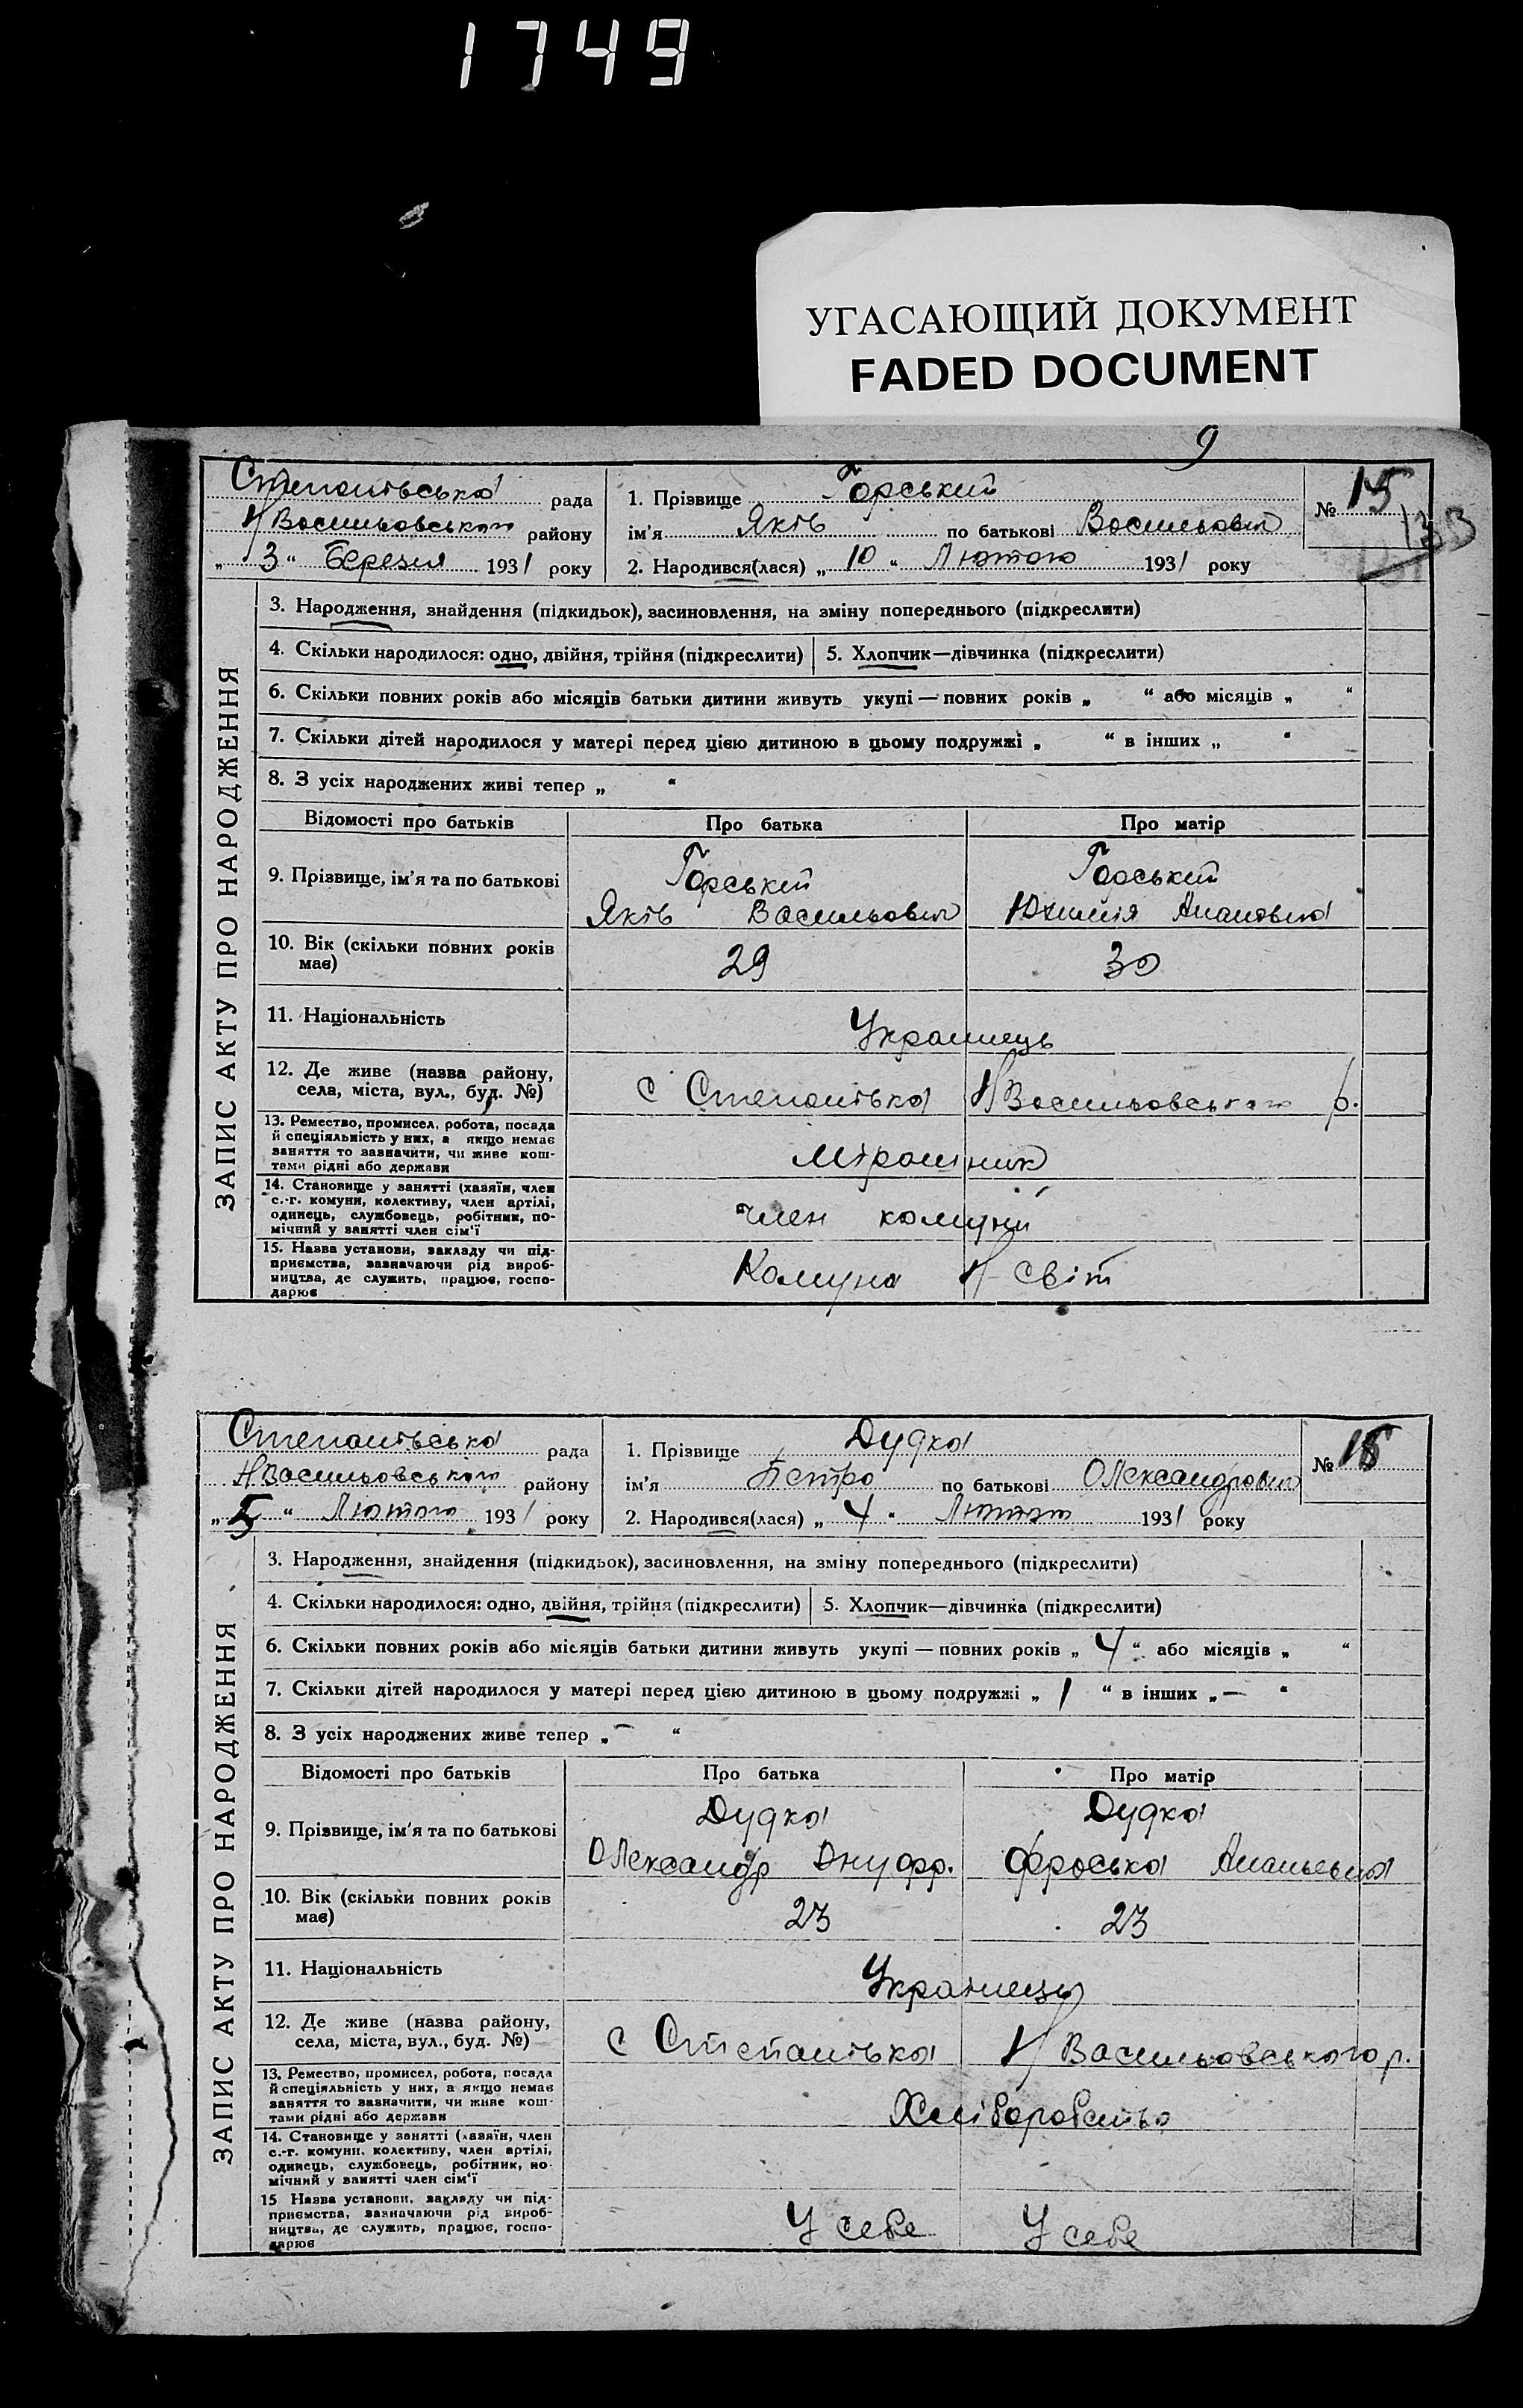 1749
УГАСАЮЩИЙ ДОКУМЕНТ
FADED DOCUMENT
9
Степанівська рада
Н Васильовського району
„ 3 “ Березня 1931 року
1. Прізвище Горський
ім'я Яків по батькові Васильович
2. Народився(лася) „ 10 “ Лютого 1931 року
№ 15
133
ЗАПИС АКТУ ПРО НАРОДЖЕННЯ
3. Народження, знайдення (підкидьок), засиновлення, на зміну попереднього (підкреслити)
4. Скільки народилося: одно, двійня, трійня (підкреслити) 5. Хлопчик—дівчинка (підкреслити)
6. Скільки повних років або місяців батьки дитини живуть укупі — повних років „ “ або місяців „ “
7. Скільки дітей народилося у матері перед цією дитиною в цьому подружжі „ “ в інших „ “
8. З усіх народжених живі тепер „ “
Відомості про батьків Про батька Про матір
9. Прізвище, ім'я та по батькові
Горський Горський
Яків Васильович Юхимія Ананівна
10. Вік (скільки повних років
має)
29 30
11. Національність
Українець
12. Де живе (назва району,
села, міста, вул., буд. №)
с Степанівка Н Васильовського р.
13. Ремество, промисел, робота, посада
й спеціяльність у них, а якщо немає
заняття то зазначити, чи живе кош-
тами рідні або держави
Мірошник
14. Становище у занятті (хазяїн, член
с.-г. комуни, колективу, член артілі,
одинець, службовець, робітник, по-
мічний у занятті член сім'ї
член комуни
15. Назва установи, закладу чи під-
приємства, зазначаючи рід вироб-
ництва, де служить, працює, госпо-
дарює
Комуна Н світ
Степанівська рада
Н Васильовського району
„ 5 “ Лютого 1931 року
1. Прізвище Дудка
ім'я Петро по батькові Олександрович
2. Народився(лася) „ 4 “ Лютого 1931 року
№ 16
ЗАПИС АКТУ ПРО НАРОДЖЕННЯ
3. Народження, знайдення (підкидьок), засиновлення, на зміну попереднього (підкреслити)
4. Скільки народилося: одно, двійня, трійня (підкреслити) 5. Хлопчик—дівчинка (підкреслити)
6. Скільки повних років або місяців батьки дитини живуть укупі — повних років „ 4 “ або місяців „ “
7. Скільки дітей народилося у матері перед цією дитиною в цьому подружжі „ 1 “ в інших „ — “
8. З усіх народжених живе тепер „ — “
Відомості про батьків Про батька Про матір
9. Прізвище, ім'я та по батькові
Дудка Дудка
Олександр Онуфр. Фроська Ананьевна
10. Вік (скільки повних років
має)
23 23
11. Національність
Українець
12. Де живе (назва району,
села, міста, вул., буд. №)
с Степанівка Н Васильовського р.
13. Ремество, промисел, робота, посада
й спеціяльність у них, а якщо немає
заняття то зазначити, чи живе кош-
тами рідні або держави
Хліборобство
14. Становище у занятті (хазяїн, член
с.-г. комуни, колективу, член артілі,
одинець, службовець, робітник, по-
мічний у занятті член сім'ї
15 Назва установи, закладу чи під-
приємства, зазначаючи рід вироб-
ництва, де служить, працює, госпо-
дарює
У себе У себе